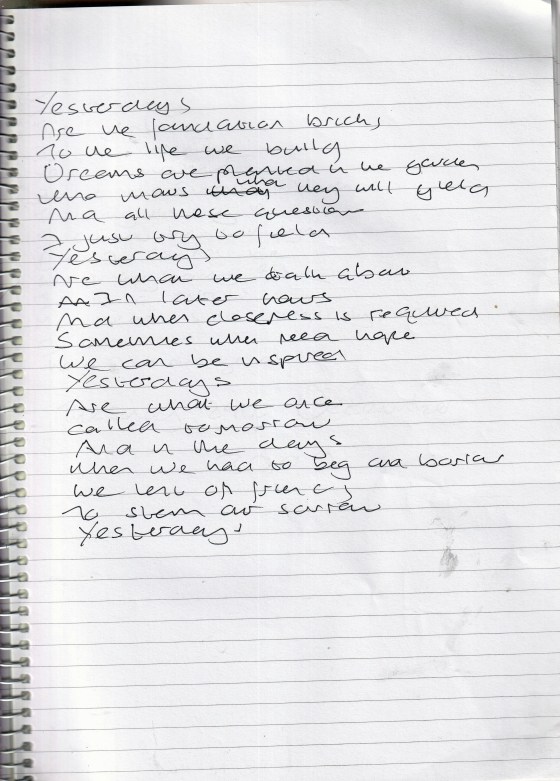 Yesterdays
Are the foundation bricks
To the life we build
Dreams are planted in the garden
Who knows what they will yield
And all these questions
I just try to field
Yesterdays
Are what we talk about
In later hours
And when closeness is required
Sometimes when need hope
We can be inspired
Yesterdays
Are what we once
called tomorrow
And in the days
When we had to beg and borrow
We lent on friends
To stem our sorrow
Yesterdays